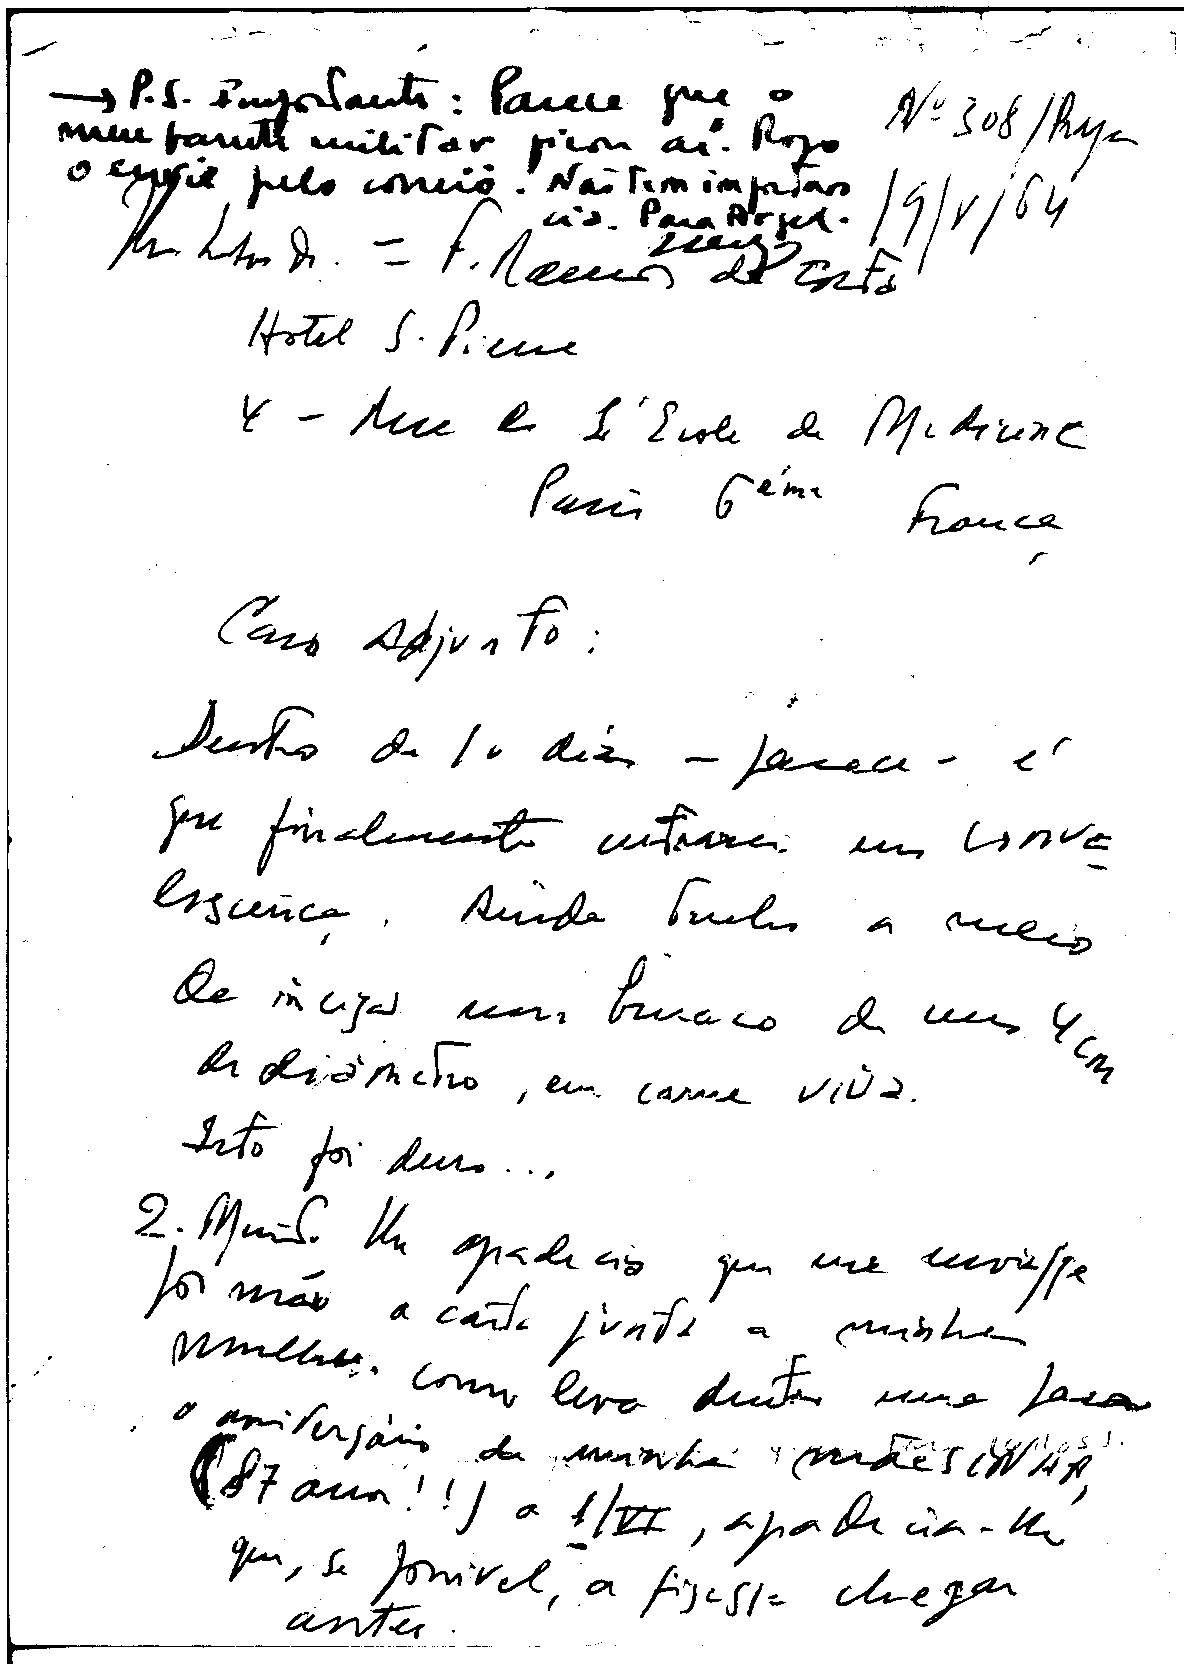 → P.S. Importante: Parece que o
meu fato militar ficou aí. Rogo
o envie pelo correio. Não tem importân
cia. Para Argel.
Nº 308/
19/V/64
F. Ramos da Costa
Hotel S. Pierre
4 - Rue de L'École de Médicine
Paris 6ème France
Caro Adjunto:
Dentro de 10 dias - parece - é
que finalmente entrarei em conva
lescença. Ainda tenho a meio
da incisão um buraco de uns 4 cm
de diâmetro, em carne viva.
Isto foi duro...
2. Muito lhe agradecia que me enviasse
por mão a carta junta a minha
mulher. Como leva dentro uma para
o aniversário de minha mãesinha,
(87 anos!!) a 1/VI, agradecia-lhe
que, se possível, a fizesse chegar
antes.